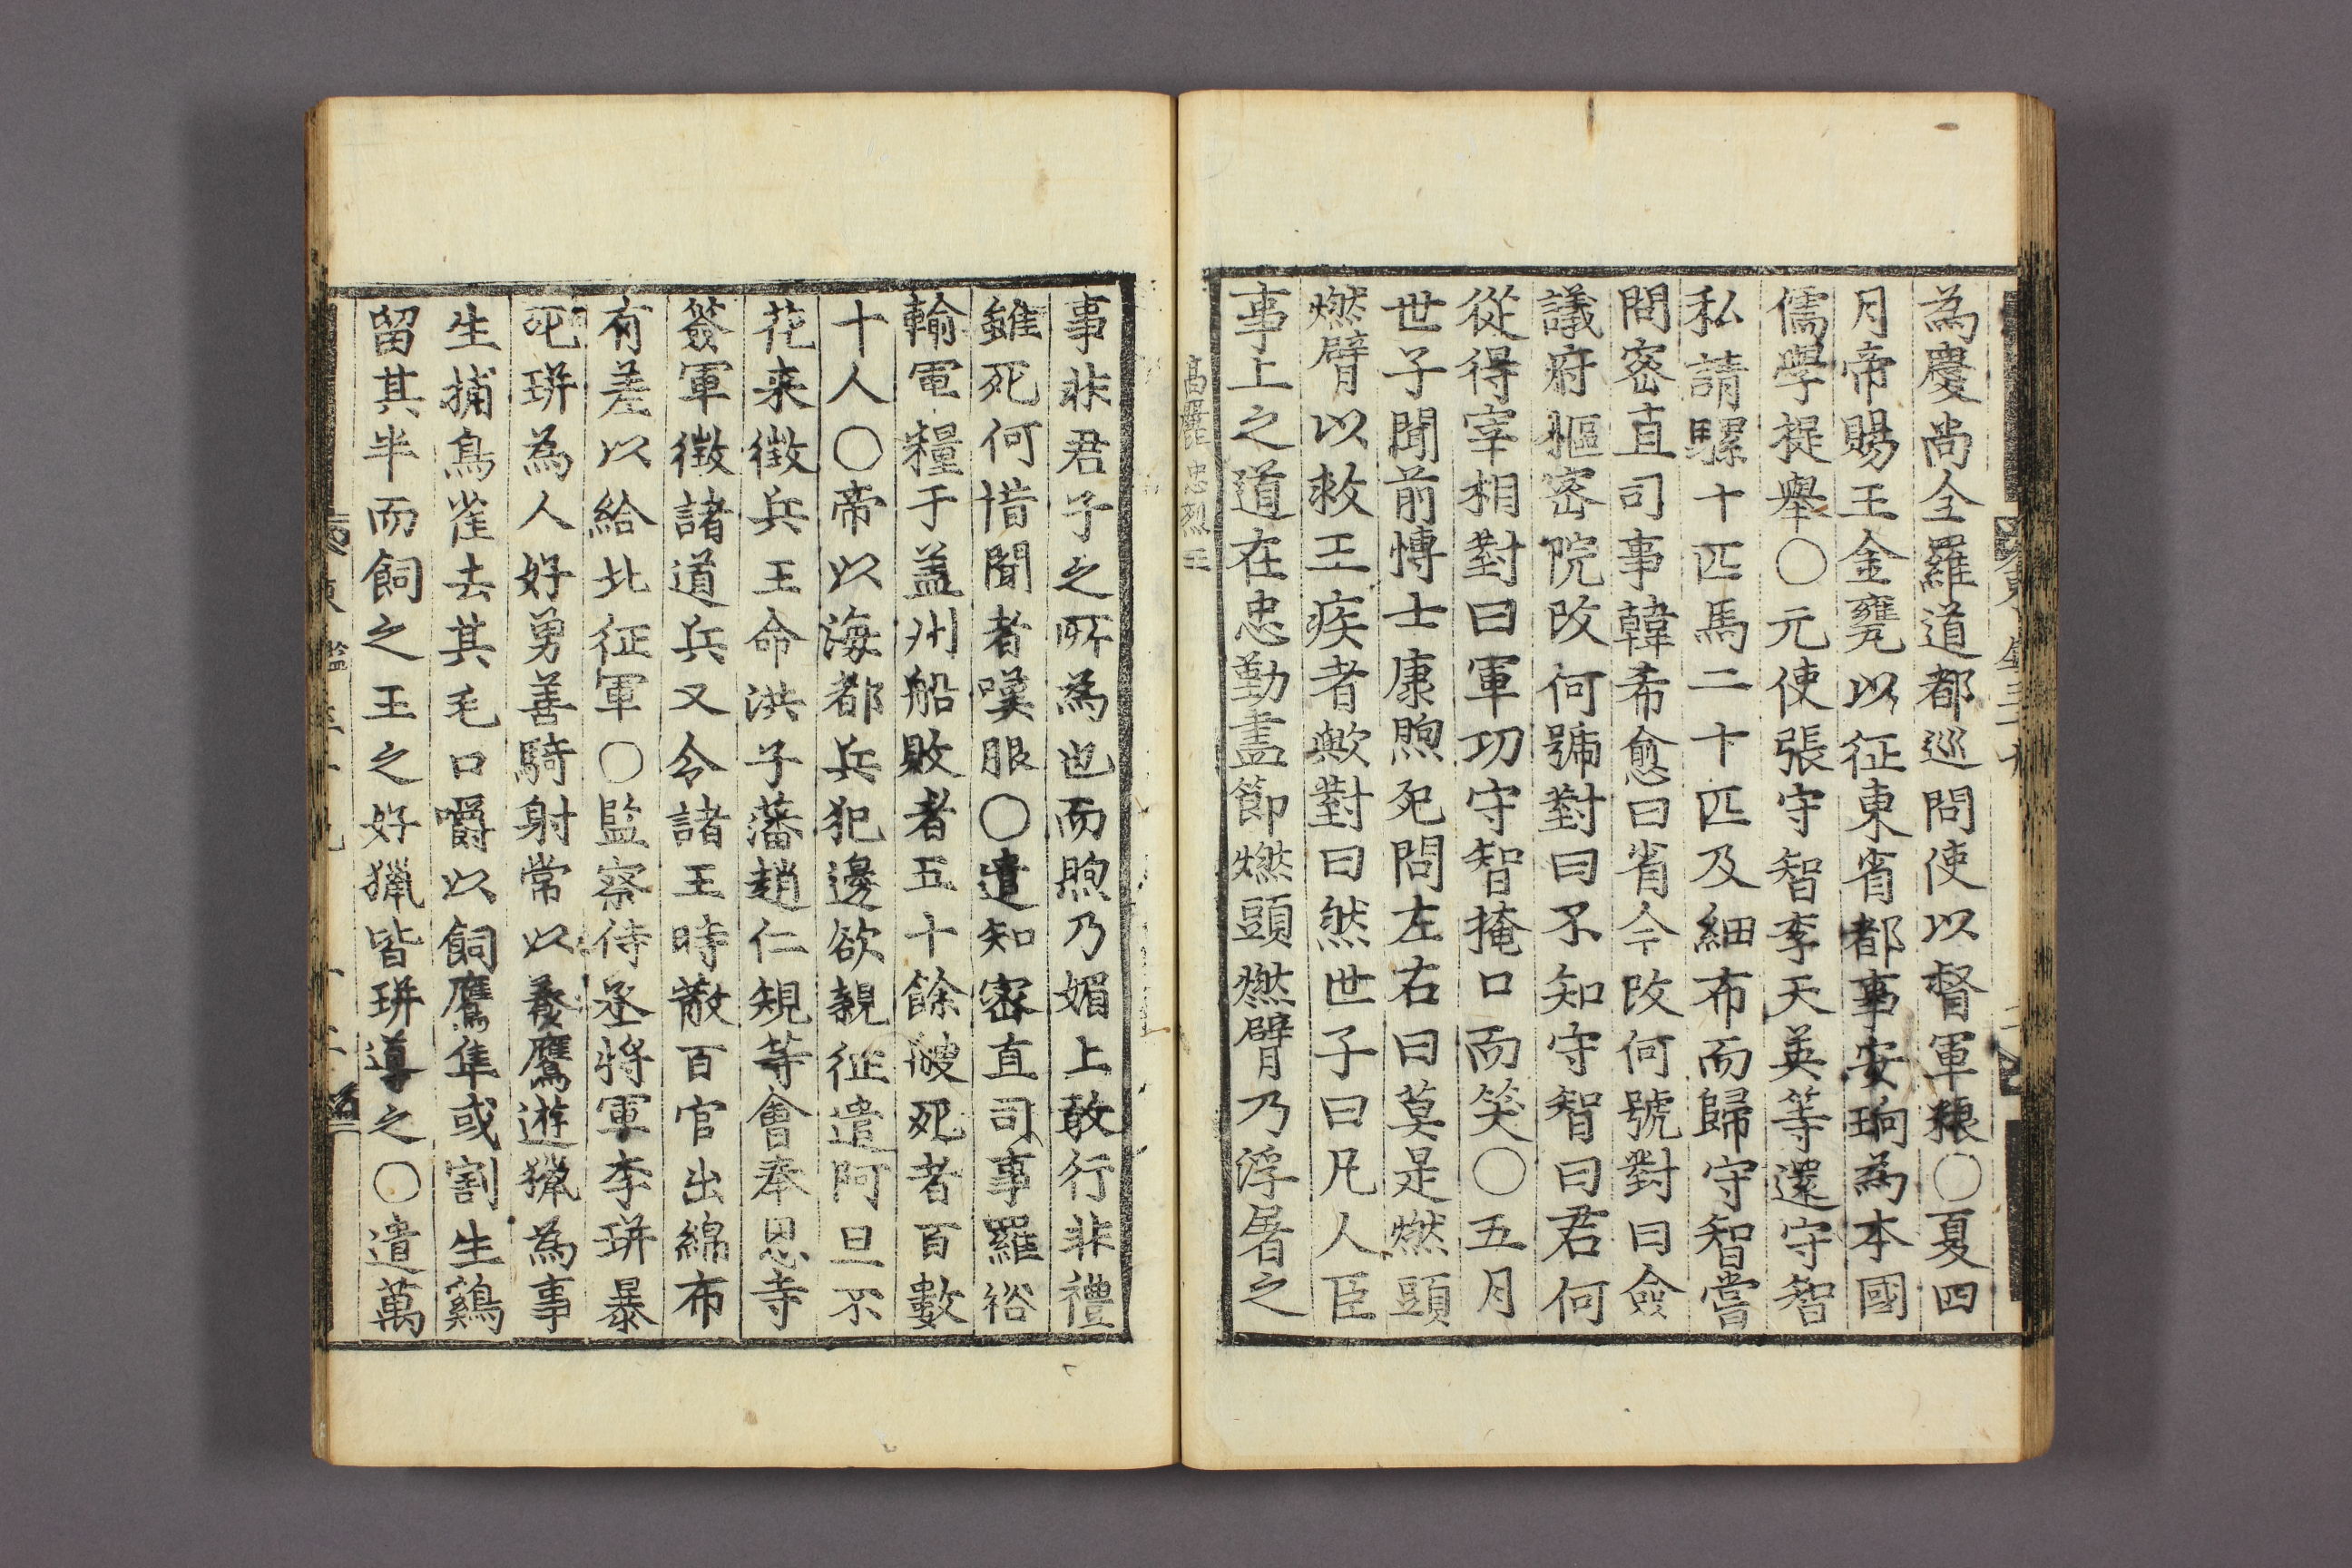 為慶尚全羅道都巡問使以督軍粮○夏四
月帝賜王金甕以征東省都事安珦為本國
儒學提舉○元使張守智李天英等還守智
私請騾十匹馬二十匹及細布而歸守智嘗
問密直司事韓希愈曰省今改何號對曰僉
議府樞密院改何號對曰不知守智曰君何
從得宰相對曰軍功守智掩口而笑○五月
世子聞前愽士康煦死問左右曰莫是燃頭
燃臂以救王疾者歟對曰然世子曰凡人臣
事上之道在忠勤盡節燃頭燃臂乃浮屠之
高麗忠烈王
事非君子之所為也而煦乃媚上敢行非禮
雖死何惜聞者嘆服○遣知密直司事羅裕
輸軍糧于盖州船敗者五十餘艘死者百數
十人○帝以海都兵犯邊欲親征遣阿旦不
花来徵兵王命洪子藩趙仁規等會奉恩寺
簽軍徵諸道兵又令諸王時散百官出綿布
有差以給北征軍○監察侍丞將軍李玶暴
死玶為人好勇善騎射常以養鷹遊獵為事
生捕鳥雀去其毛口嚼以飼鷹隼或割生鷄
留其半而飼之王之好獵皆玶導之○遣萬